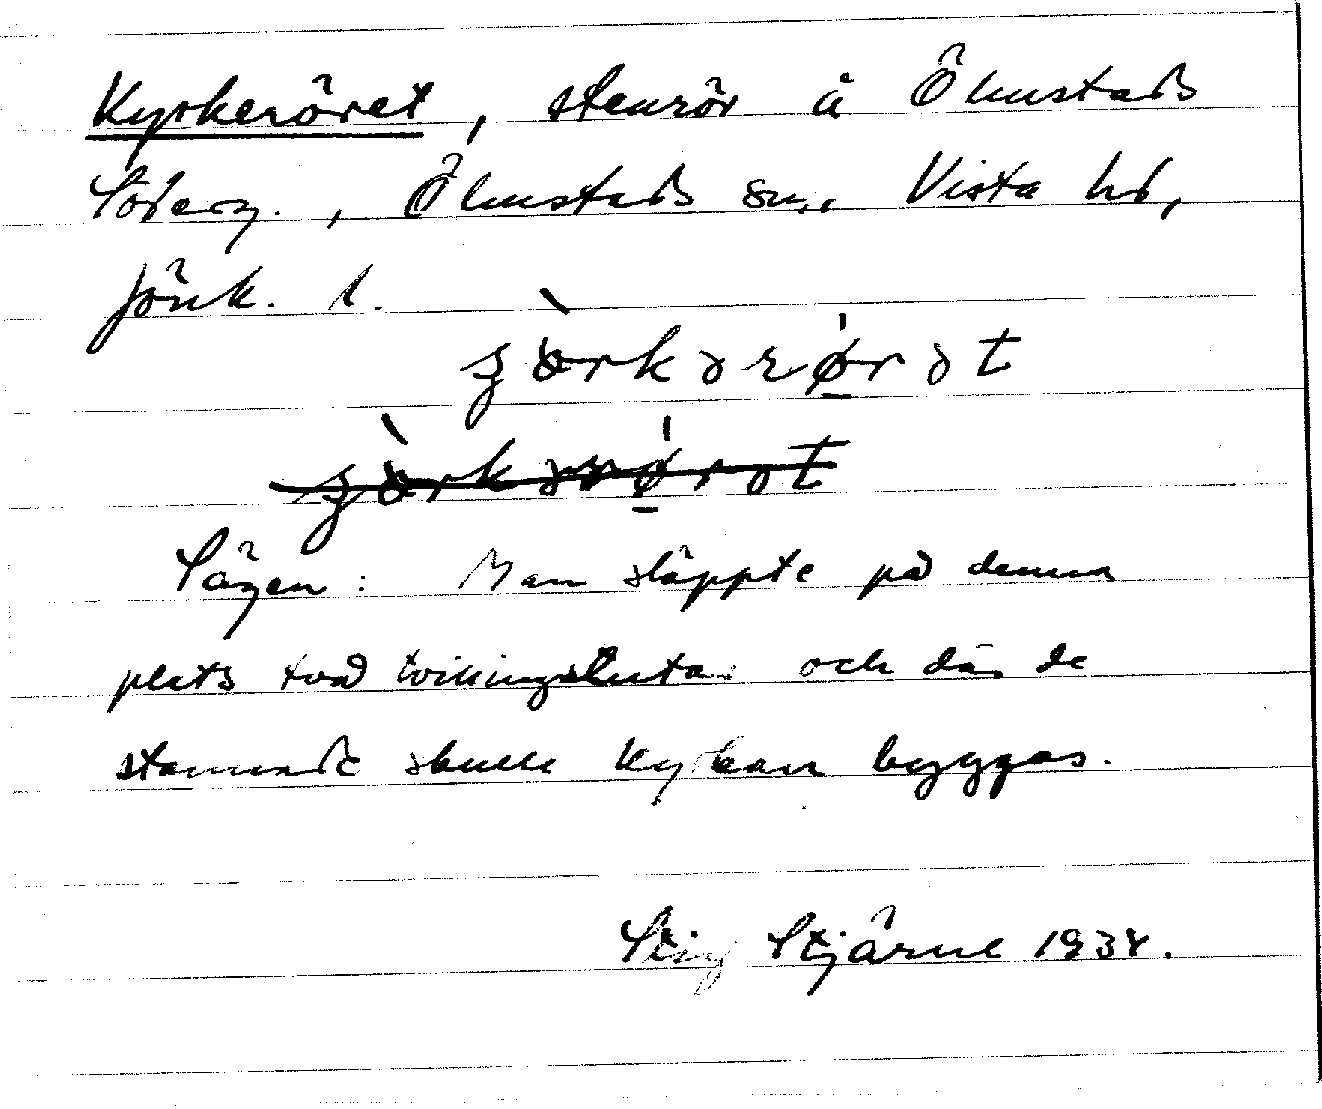 Kyrkeröret, stenrör å Ölmstads
Söderg., Ölmstads sn., Vista hd,
Jönk. l.
Sägen: Man släppte på denna
plats två tvillingstutar och där de
stannade skulle kyrkan byggas.
Stig Stjärne 1934.